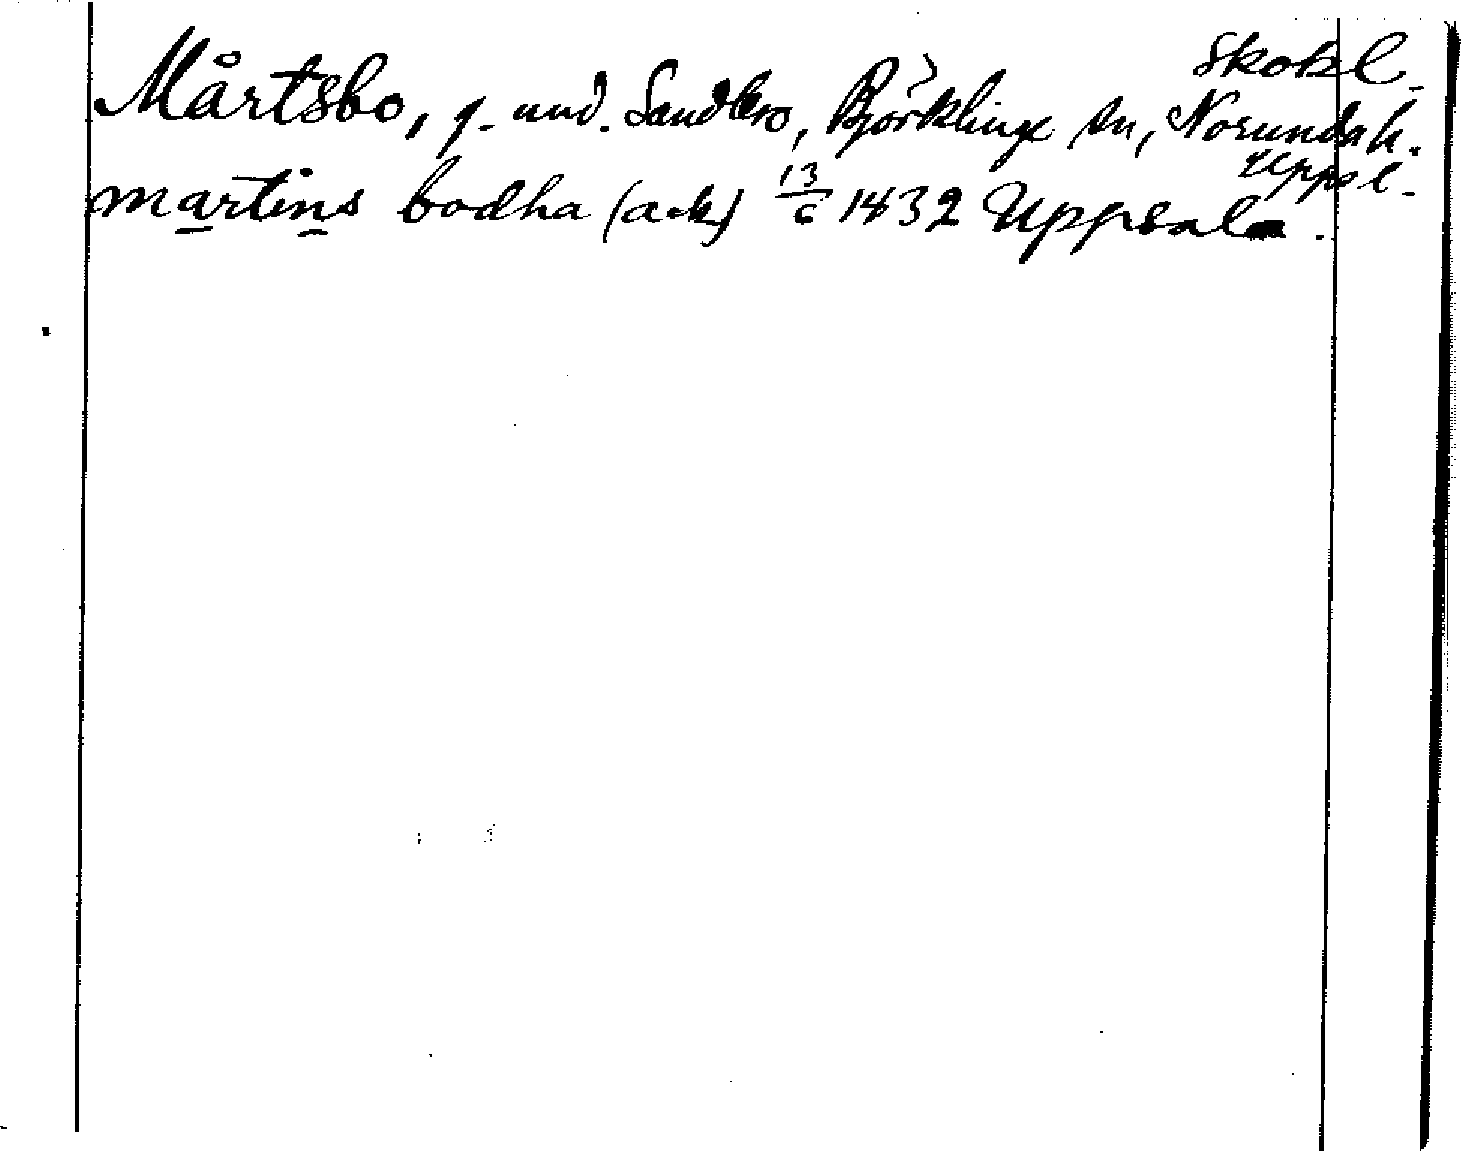 Skokl.
Mårtsbo, g. und. Sandbro, Björklinge sn, Norunda h.
Upps l.
martins bodha (ack) 13/6 1432 Uppsala.